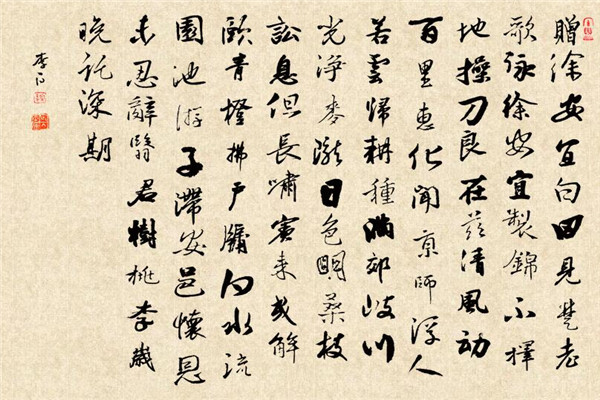 贈徐安宜白田見楚老
歌詠徐安宜製錦不擇
地操刀良在茲清風动
百里惠化聞京師浮人
若雲歸耕種滿郊岐川
光淨麥隴日色明桑枝
訟息但長嘯賓来或解
頤青橙拂户牖白水流
園池游子滯安邑懷恩
未忍辭翳君樹桃李歲
晚託深期
李白